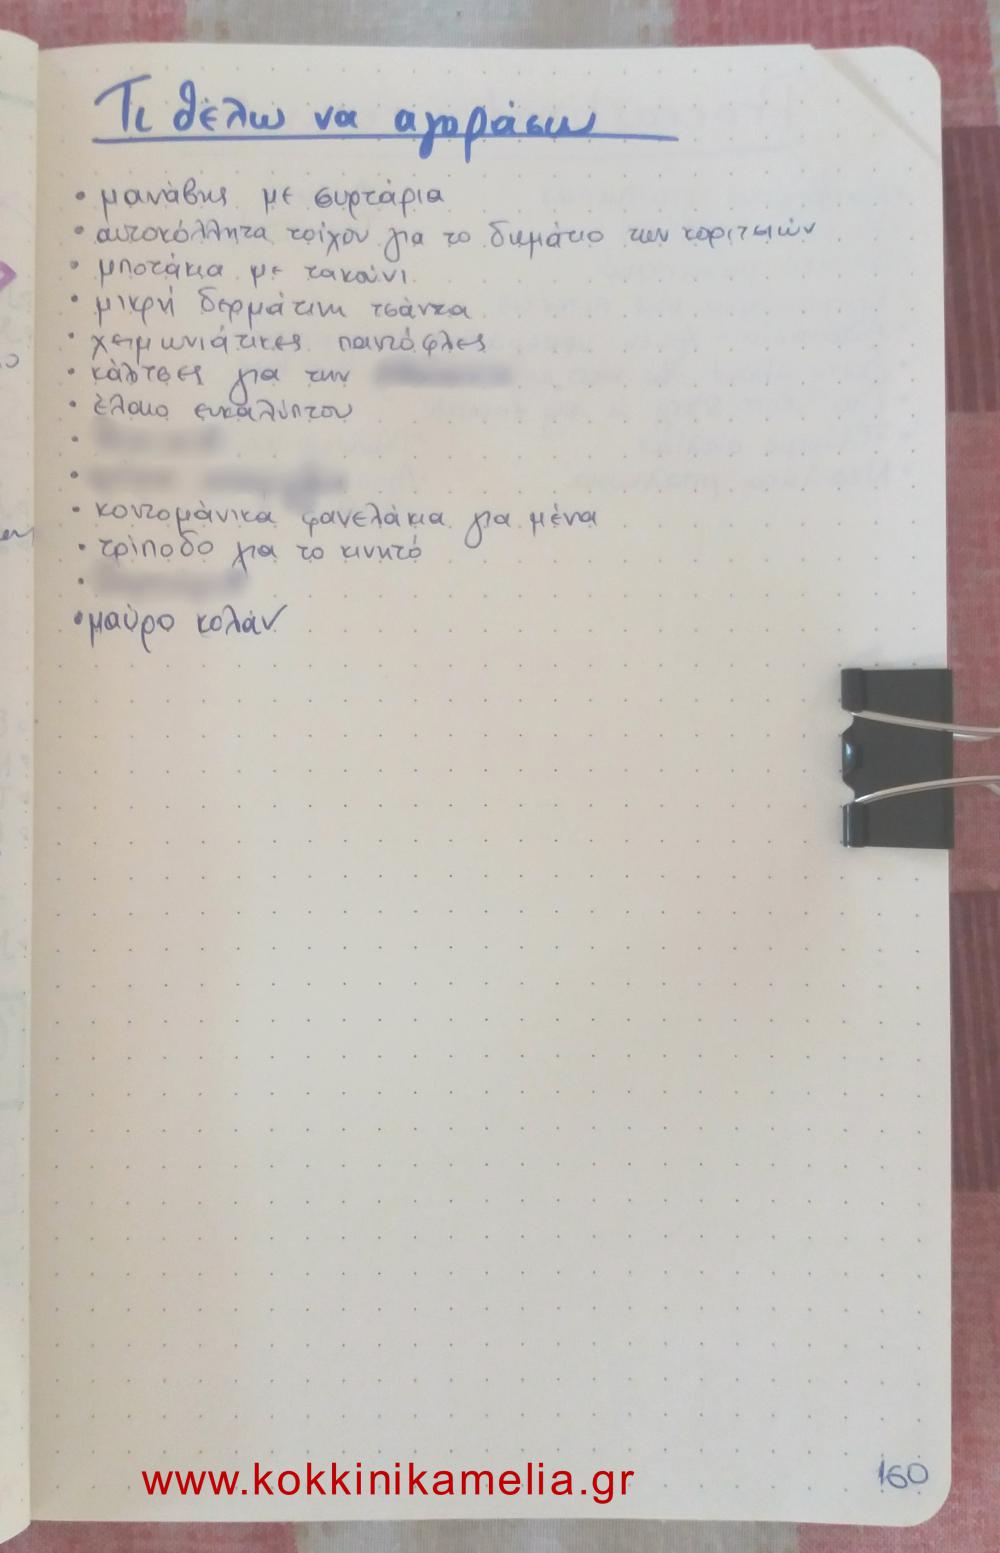 Τι θέλω να αγοράσω
• μανάβης με συρτάρια
• αυτοκόλλητα τοίχου για το δωμάτιο των κοριτσιών
• μποτάκια με τακούνι
• μικρή δερμάτινη τσάντα
• χειμωνιάτικες παντόφλες
• κάλτσες για την
• έλαιο ευκαλύπτου
•
•
• κοντομάνικα φανελάκια για μένα
• τρίποδο για το κινητό
•
• μαύρο κολάν
www.kokkinikamelia.gr
160